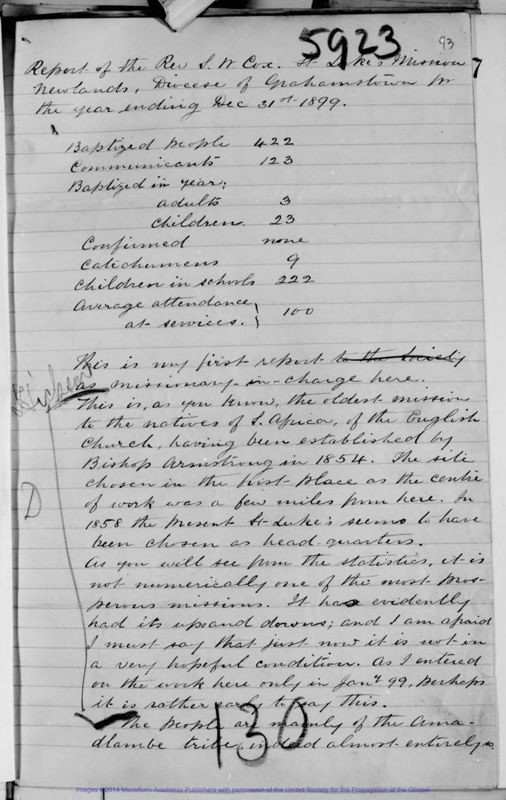 5923
93
7
Report of the Rev S. W. Cox. St Luke's Mission
Newlands, Diocese of Grahamstown for
the year ending Dec 31st 1899.
Baptized People 422
Communicants 123
Baptized in year;
adults 3
children. 23
Confirmed none
Catechumens 9
Children in schools 222
Average attendance } 100
at services.
This is my first report to the Society
as missionary-in-charge here.
This is, as you know, the oldest mission
to the natives of S. Africa, of the English
Church, having been established by
Bishop Armstrong in 1854. The site
chosen in the first place as the centre
of work was a few miles from here. In
1858 the present St Luke's seems to have
been chosen as head-quarters.
D
As you will see from the statistics, it is
not numerically one of the most pros-
perous missions. It has evidently
had its ups and downs; and I am afraid
I must say that just now it is not in
a very hopeful condition. As I entered
on the work here only in Jany 99, perhaps
it is rather early to say this.
The people are mainly of the Ama-
dlambe tribe, indeed almost entirely so
130
Images © 2014 Microform Academic Publishers with permission of the United Society for the Propagation of the Gospel